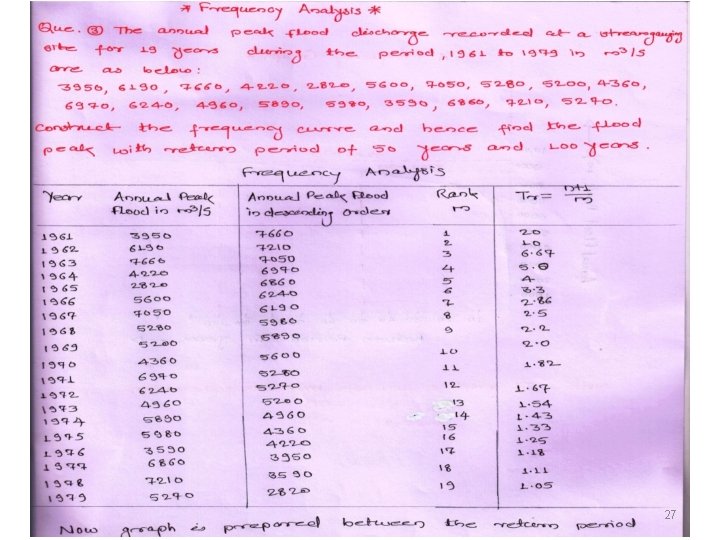 * Frequency Analysis *
Que. ③ The annual peak flood discharge recorded at a streamgauging
site for 19 years during the period, 1961 to 1979 in m³/s
are as below:
3950, 6190, 7660, 4220, 2820, 5600, 7050, 5280, 5200, 4360,
6970, 6240, 4960, 5890, 5980, 3590, 6860, 7210, 5270.
Construct the frequency curve and hence find the flood
peak with return period of 50 years and 100 years.
Frequency Analysis
Year Annual Peak Flood in m³/s Annual Peak Flood in descending order Rank m Tr = n+1/m
1961 3950 7660 1 20
1962 6190 7210 2 10
1963 7660 7050 3 6.67
1964 4220 6970 4 5.0
1965 2820 6860 5 4
1966 5600 6240 6 3.3
1967 7050 6190 7 2.86
1968 5280 5980 8 2.5
1969 5200 5890 9 2.2
1970 4360 5600 10 2.0
1971 6970 5280 11 1.82
1972 6240 5270 12 1.67
1973 4960 5200 13 1.54
1974 5890 4960 14 1.43
1975 5980 4360 15 1.33
1976 3590 4220 16 1.25
1977 6860 3950 17 1.18
1978 7210 3590 18 1.11
1979 5270 2820 19 1.05
Now graph is preparred between the return period
27